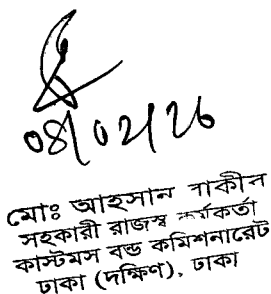 ০৪/০২/২৬
মোঃ আহসান
সহকারী রাজস্ব কর্মকর্তা
কাস্টমস বন্ড কমিশনারেট
ঢাকা (দক্ষিণ), ঢাকা